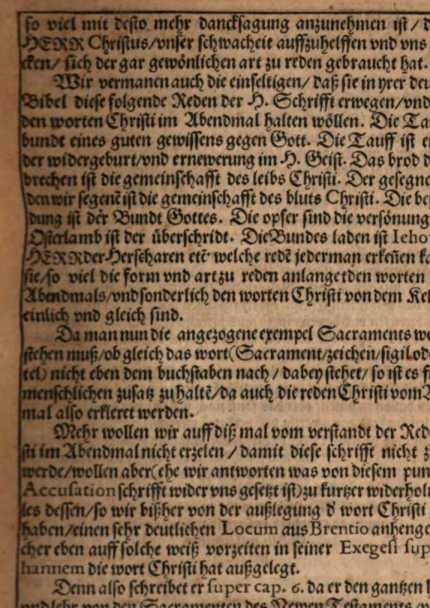 so viel mit desto mehr dancksagung anzunehmen ist / d
HERR Christus/vnser schwacheit auffzuhelffen vnd vns
cken/ sich der gar gewönlichen art zu reden gebraucht hat.
Wir vermanen auch die einfeltigen/ daß sie in yrer deu
Bibel diese folgende Reden der H. Schrifft erwegen/vnd
den worten Christi im Abendmal halten wöllen. Die Ta
bundt eines guten gewissens gegen Gott. Die Tauff ist e
der widergeburt/vnd ernewerung im H. Geist. Das brod d
brechen ist die gemeinschafft des leibs Christi. Der gesegne
den wir segenē ist die gemeinschafft des bluts Christi. Die be
dung ist der Bundt Gottes. Die opfer sind die versönung
Osterlamb ist der überschridt. Die Bundes laden ist Ieho
HERR der Herscharen etc̄ welche redē jederman erkeñen ka
sie/so viel die form vnd art zu reden anlanget den worten
Abendmals/vnd sonderlich den worten Christi von dem Kel
einlich vnd gleich sind.
Da man nun die angezogene exempel Sacraments we
stehen muß/ob gleich das wort (Sacrament/zeichen/sigil oder
tel) nicht eben dem buchstaben nach / dabey stehet/ so ist es f
menschlichen zusatz zu haltē/da auch die reden Christi vom A
mal also erkleret werden.
Mehr wollen wir auff diß mal vom verstandt der Red
sti im Abendmal nicht erzelen / damit diese schrifft nicht z
werde/wollen aber (ehe wir antworten was von diesem pun
Accusation schrifft wider vns gesetzt ist) zu kurtzer widerhol
les dessen/so wir bißher von der außlegung d wort Christi
haben/einen sehr deutlichen Locum aus Brentio anheng
cher eben auff solche weiß vorzeiten in seiner Exegesi sup
hannem die wort Christi hat außgelegt.
Denn also schreibet er super cap. 6. da er den gantzen
vnd lehr von den Sacramenten des Newen Testaments